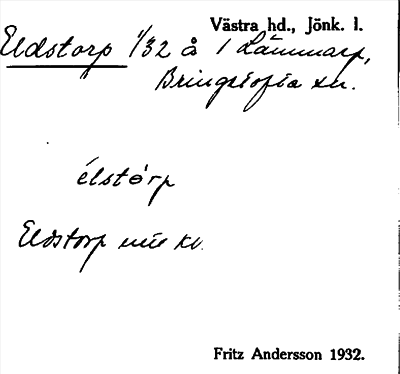 Västra hd., Jönk. l.
Eldstorp 1/32 å 1 Lämmarp,
Bringetofta sn.
élstòrp
Eldstorp mtl kv.
Fritz Andersson 1932.